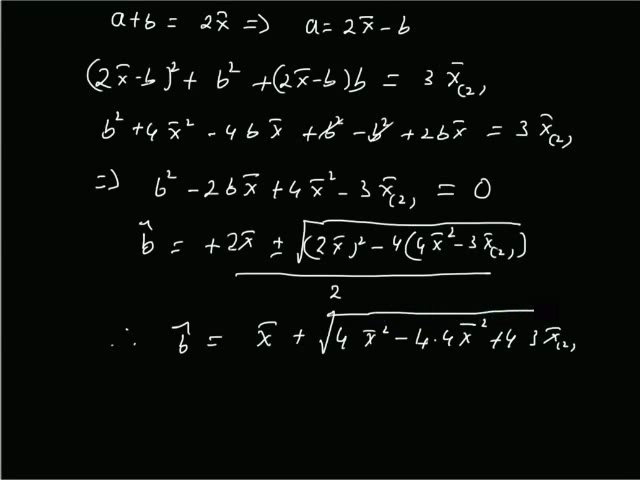 a+b = 2x̄ => a = 2x̄-b
(2x̄-b)² + b² + (2x̄-b)b = 3 x̄(2)
b² + 4x̄² - 4bx̄ + b² - b² + 2bx̄ = 3 x̄(2)
=> b² - 2bx̄ + 4x̄² - 3x̄(2) = 0
b̂ = +2x̄ ± √((2x̄)² - 4(4x̄² - 3x̄(2))) / 2
∴ b̂ = x̄ + √(4 x̄² - 4·4x̄² + 4 3 x̄(2)